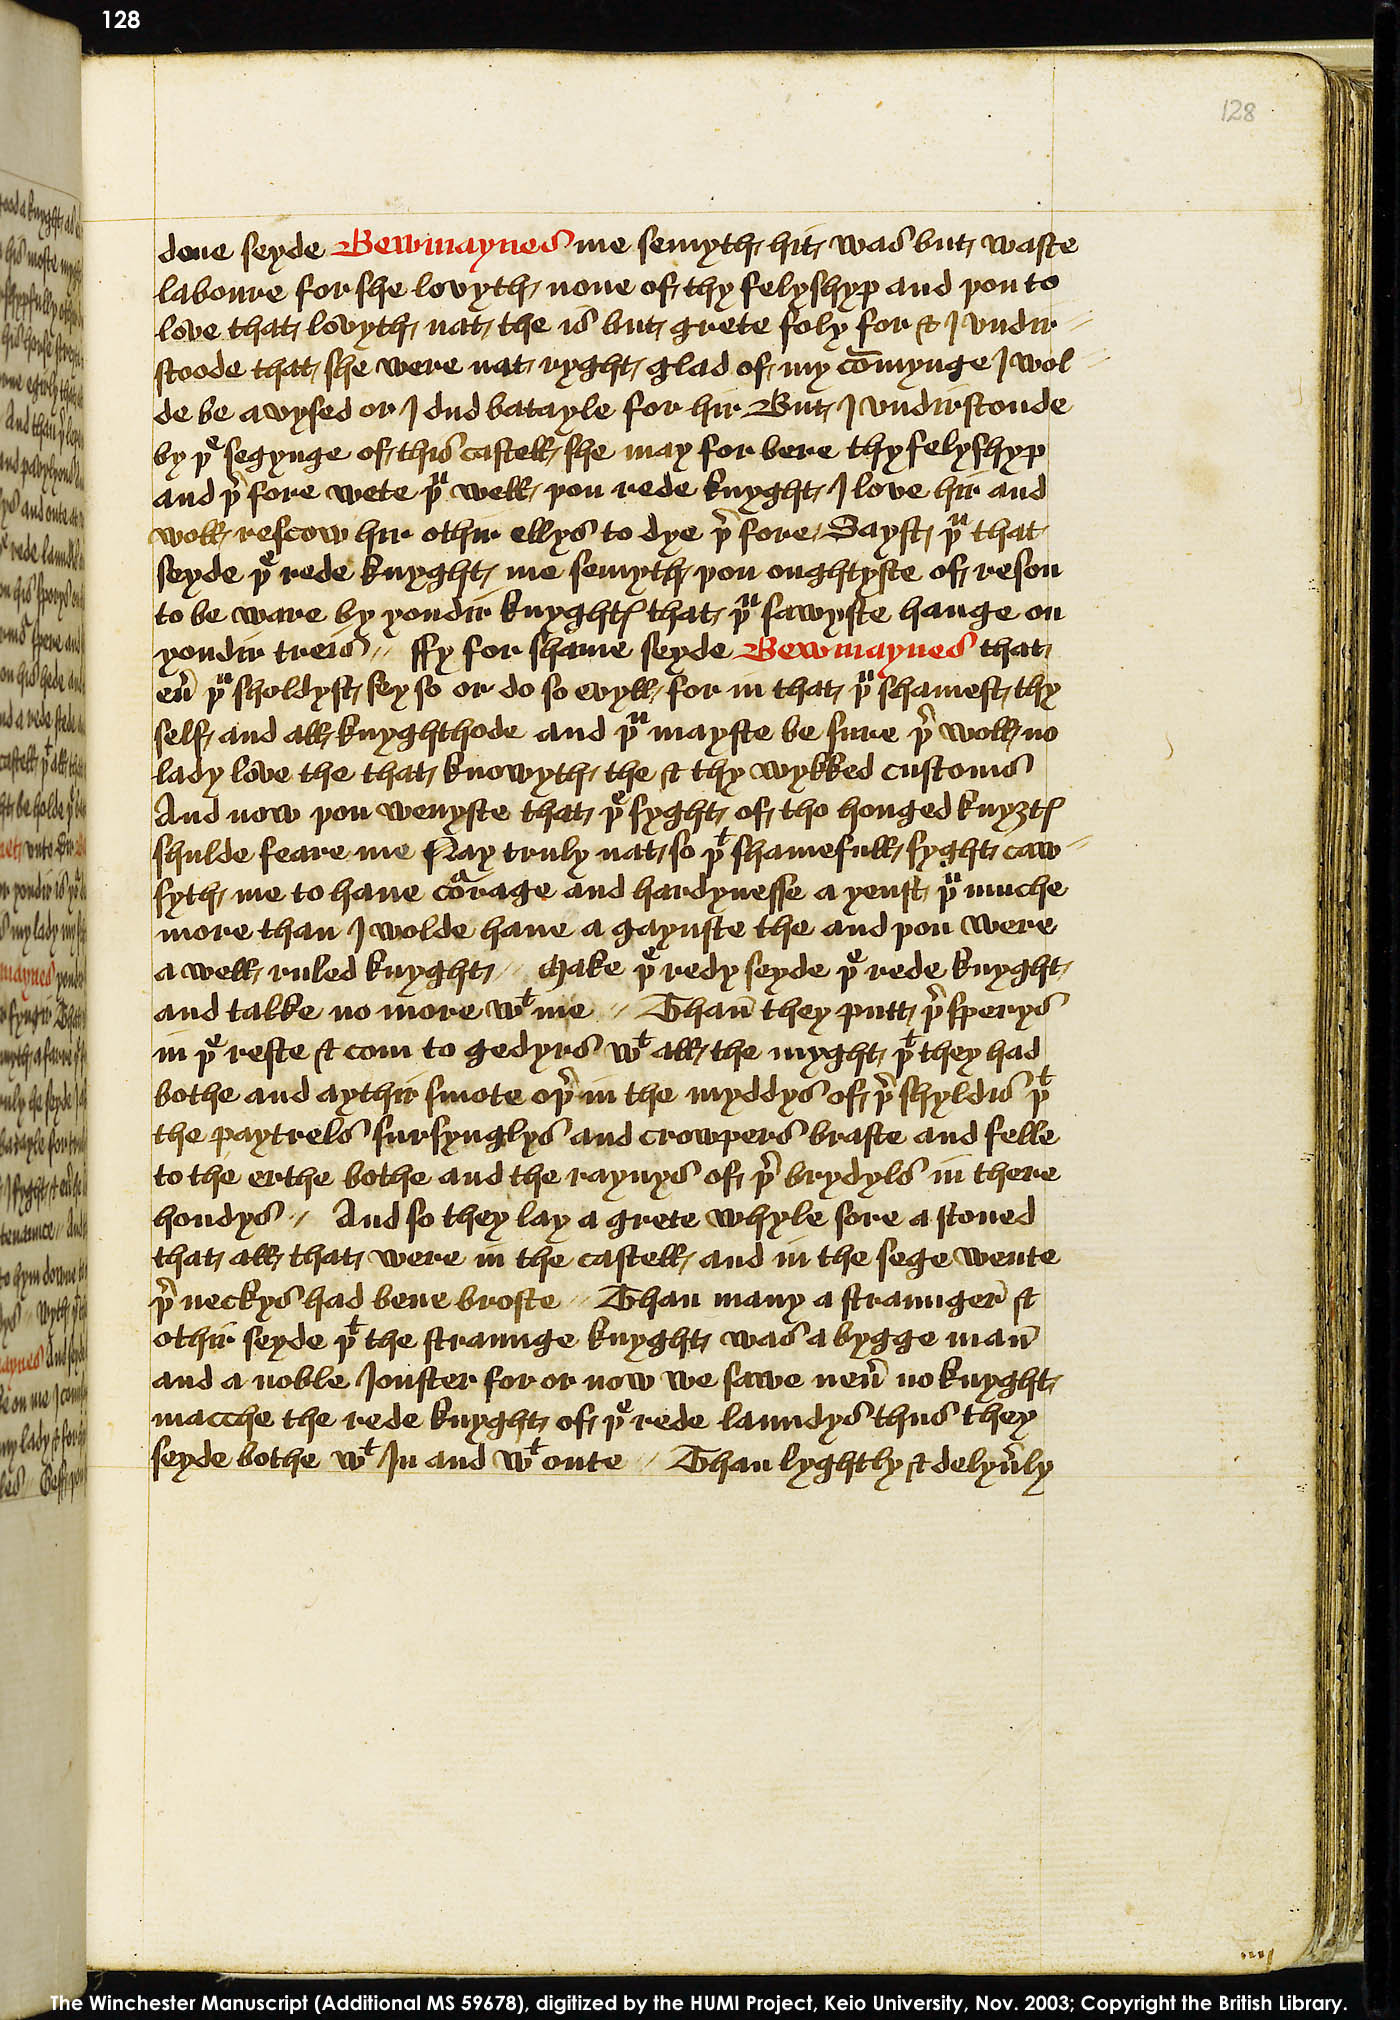 128
128
done seyde Bewmaynes me semyth hit was but waste
laboure for she lovyth none of thy felyshyp and þou to
love that lovyth nat the is but grete foly for & I vndir
stoode that she were nat ryght glad of my co̅mynge I wol
de be avysed or I dud batayle for hir But I vndirstonde
by þᵉ segynge of this castell she may for bere thy felyshyp
and þʳ fore wete þᵘ well þou rede knyght I love hir and
woll rescow hir othir ellys to dye þʳ fore Sayst þᵘ that
seyde þᵉ rede knyght me semyth þou oughtyste of reson
to be ware by yondir knyghtꝭ that þᵘ sawyste hange on
yondir treis // ffy for shame seyde Bewmaynes that
eũ þᵘ sholdyst sey so or do so evyll for in that þᵘ shamest thy
self and all knyghthode and þᵘ mayste be sure þʳ woll no
lady love the that knowyth the & thy wykked customs
And now þou wenyste that þᵉ syght of tho honged knyȝtꝭ
shulde feare me Nay truly nat so þᵗ shamefull syght caw
syth me to have coᵃrage and hardynesse a yenst þᵘ muche
more than I wolde have a gaynste the and þou were
a well ruled knyght // Make þᵉ redy seyde þᵉ rede knyght
and talke no more wᵗ me // Than̄ they putt þʳ sperys
in þᵉ reste & com to gedyrs wᵗ all the myght þᵗ they had
bothe and aythir smote oþʳ in the myddys of þʳ shyldis þᵗ
the paytrels sursynglys and crowpers braste and felle
to the erthe bothe and the raynys of þʳ brydyls in there
hondys // And so they lay a grete whyle sore a stoned
that all that were in the castell and in the sege wente
þʳ neckys had bene broste // Than many a straunger &
othir seyde þᵗ the straunge knyght was a bygge man̄
and a noble Jouster for or now we sawe neũ no knyght
macche the rede knyght of þᵉ rede laundys thus they
seyde bothe wᵗ In and wᵗ oute // Than lyghtly & delyũly
The Winchester Manuscript (Additional MS 59678), digitized by the HUMI Project, Keio University, Nov. 2003; Copyright the British Library.